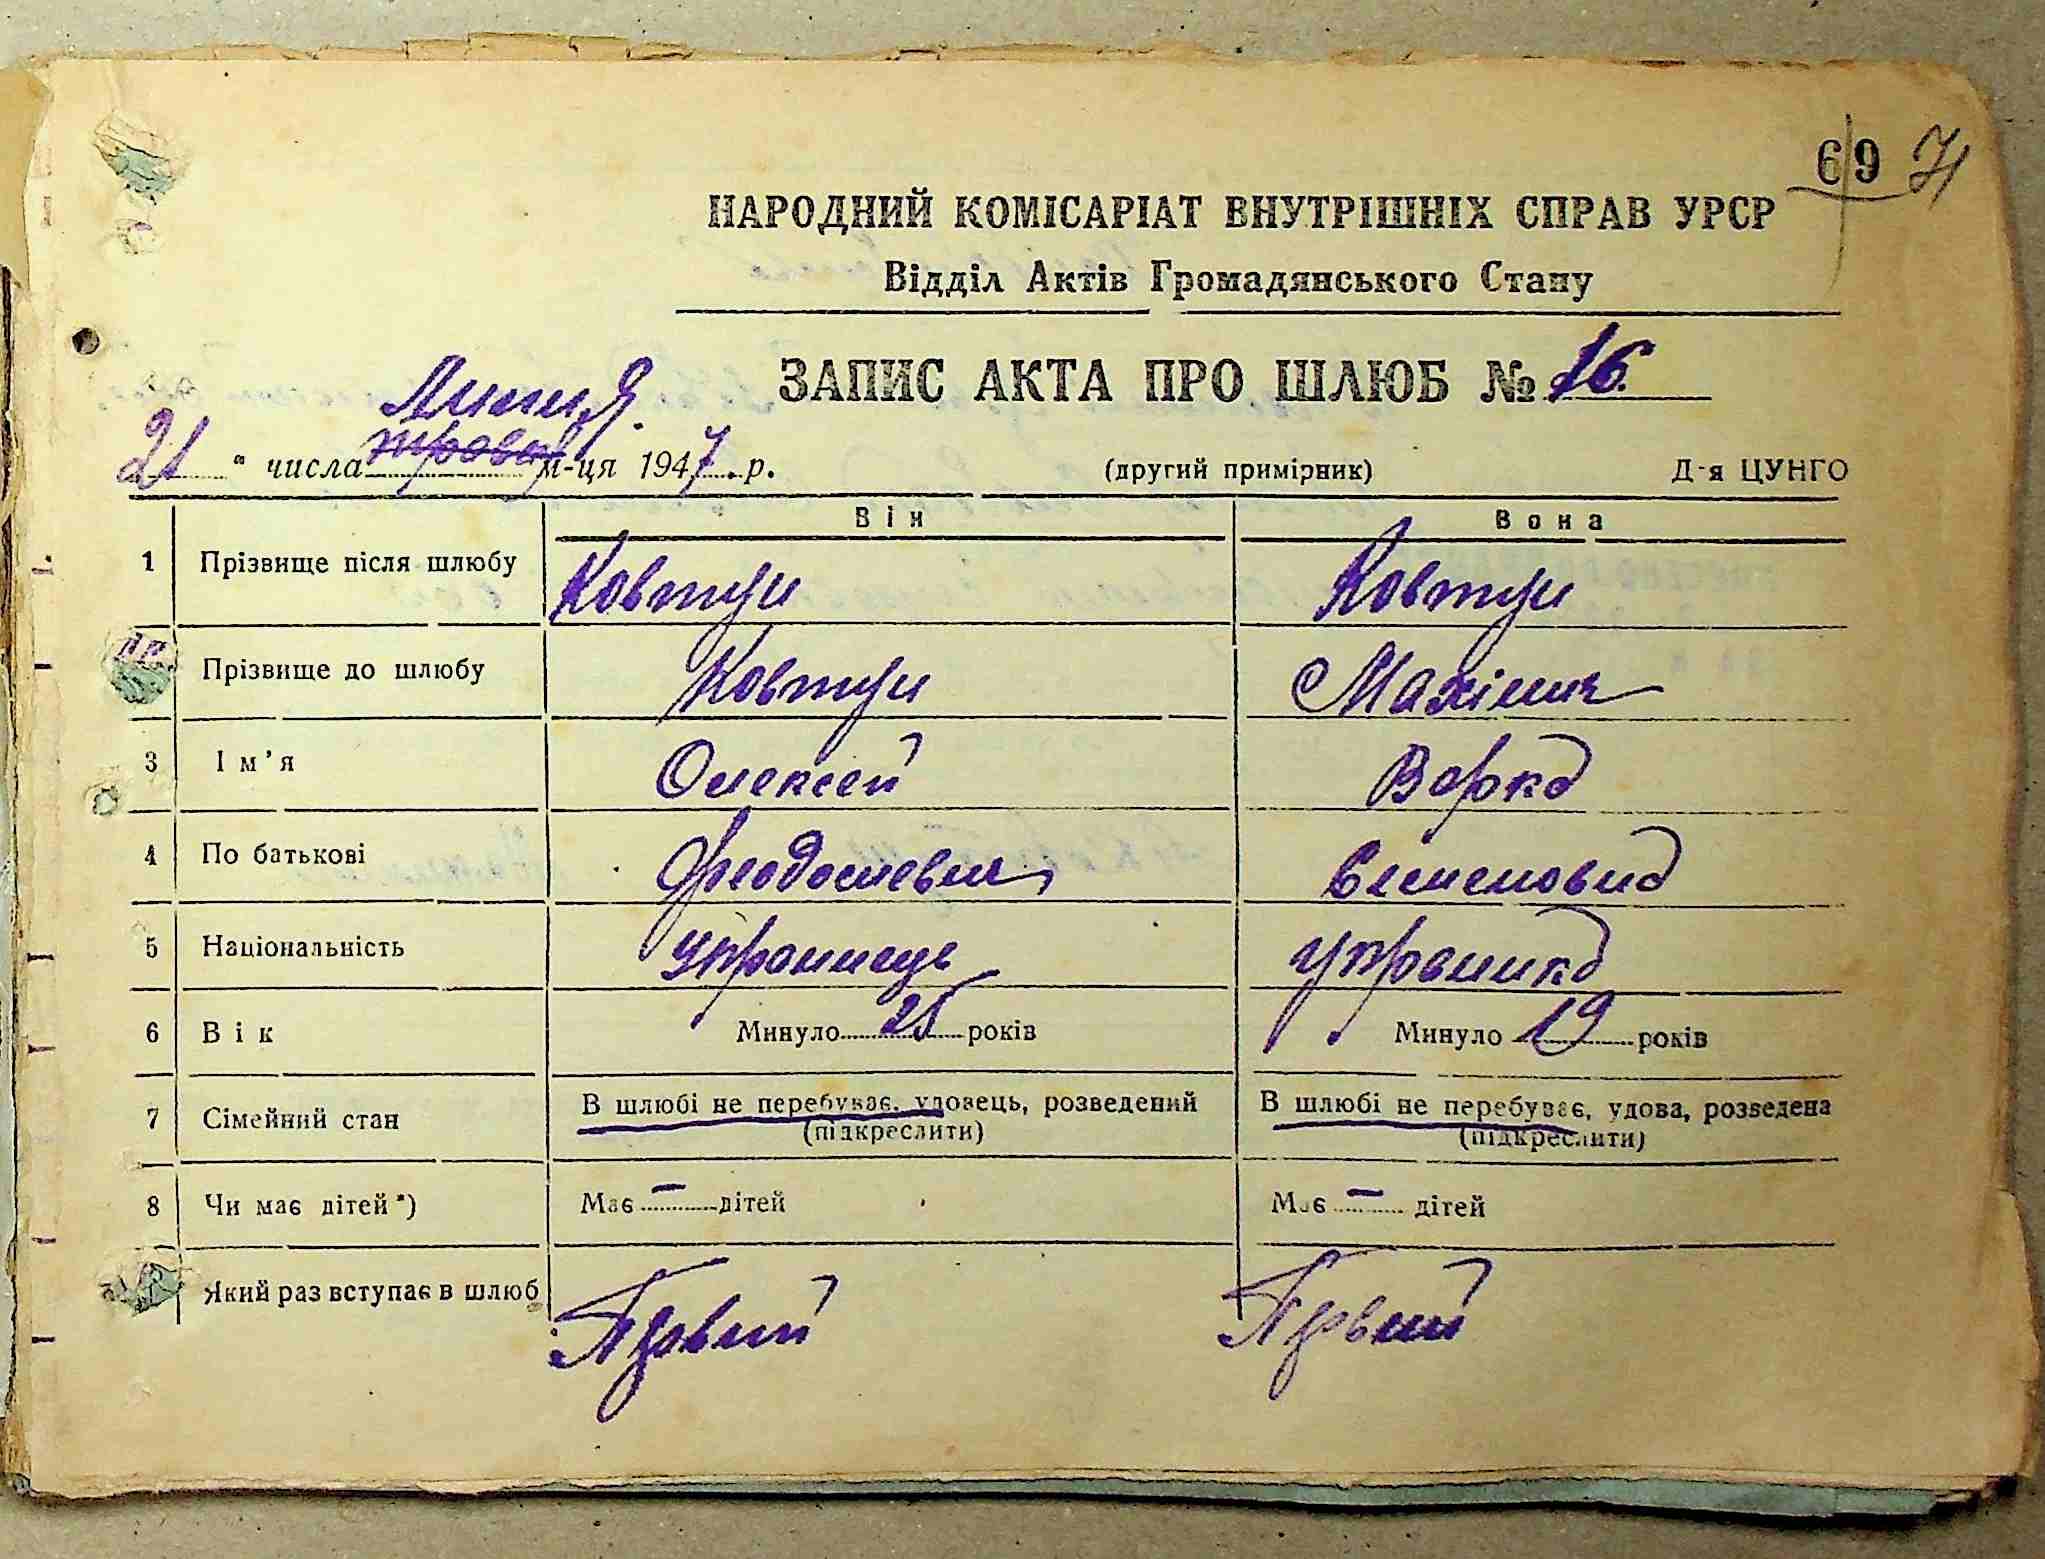 69 71
НАРОДНИЙ КОМІСАРІАТ ВНУТРІШНІХ СПРАВ УРСР
Відділ Актів Громадянського Стану
ЗАПИС АКТА ПРО ШЛЮБ № 16.
Липня
21 " числа травня м-ця 1947 р. (другий примірник) Д-я ЦУНГО
Він Вона
1 Прізвище після шлюбу Ковтун Ковтун
Прізвище до шлюбу Ковтун
3 Ім'я Олексей Варка
4 По батькові Феодосиевич Семеновна
5 Національність українець українка
6 Вік Минуло 25 років Минуло 19 років
7 Сімейний стан В шлюбі не перебуває, удовець, розведений В шлюбі не перебуває, удова, розведена
(підкреслити) (підкреслити)
8 Чи має дітей*) Має — дітей Має — дітей
Який раз вступає в шлюб Первий Первий